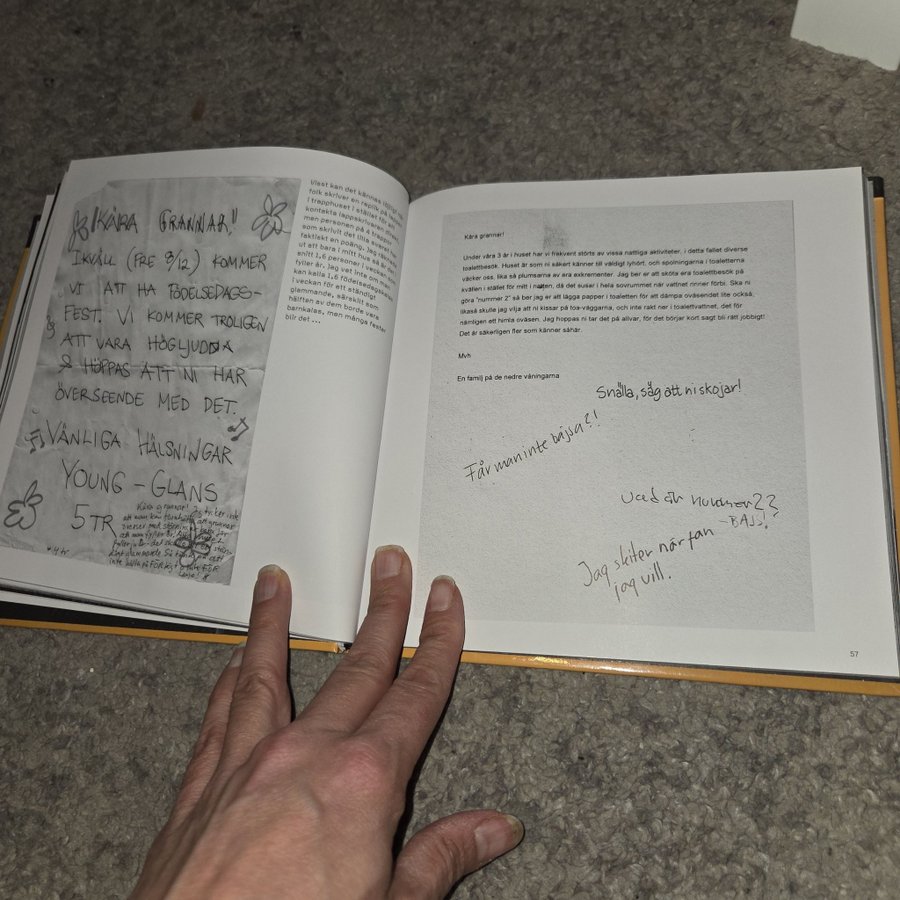 KÄRA GRANNAR!!
IKVÄLL (FRE 9/12) KOMMER
VI ATT HA FÖDELSEDAGS-
FEST. VI KOMMER TROLIGEN
ATT VARA HÖGLJUDDA
& HOPPAS ATT NI HAR
ÖVERSEENDE MED DET.
VÄNLIGA HÄLSNINGAR
YOUNG-GLANS
5TR
Kära grannar!
Visst kan det kännas
folk skriver en replik på
i trapphuset i stället för att
kontakta lappskrivaren direkt,
men personen på 4 trappor
som skrivit det lilla svaret har
faktiskt en poäng. Jag räknade
ut att bara i mitt hus så är det i
snitt 1,6 personer i veckan som
fyller år. Jag vet inte om man
kan kalla 1,6 födelsedagskalas
i veckan för ett ständigt
glammande, särskilt som
hälften av dem borde vara
barnkalas, men många fester
blir det ...
Kära grannar!
Under våra 3 år i huset har vi frekvent störts av vissa nattliga aktiviteter, i detta fallet diverse
toalettbesök. Huset är som ni säkert känner till väldigt lyhört, och spolningarna i toaletterna
väcker oss, lika så plumsarna av era exkrementer. Jag ber er att sköta era toalettbesök på
kvällen i stället för mitt i natten, då det susar i hela sovrummet när vattnet rinner förbi. Ska ni
göra "nummer 2" så ber jag er att lägga papper i toaletten för att dämpa oväsendet lite också,
likaså skulle jag vilja att ni kissar på toa-väggarna, och inte rakt ner i toalettvattnet, det för
nämligen ett himla oväsen. Jag hoppas ni tar det på allvar, för det börjar kort sagt bli rätt jobbigt!
Det är säkerligen fler som känner såhär.
Mvh
En familj på de nedre våningarna
Snälla, säg att ni skojar!
Får man inte bajsa?!
vad är nummer 2?
-BAJS!
Jag skiter när fan
jag vill.
57